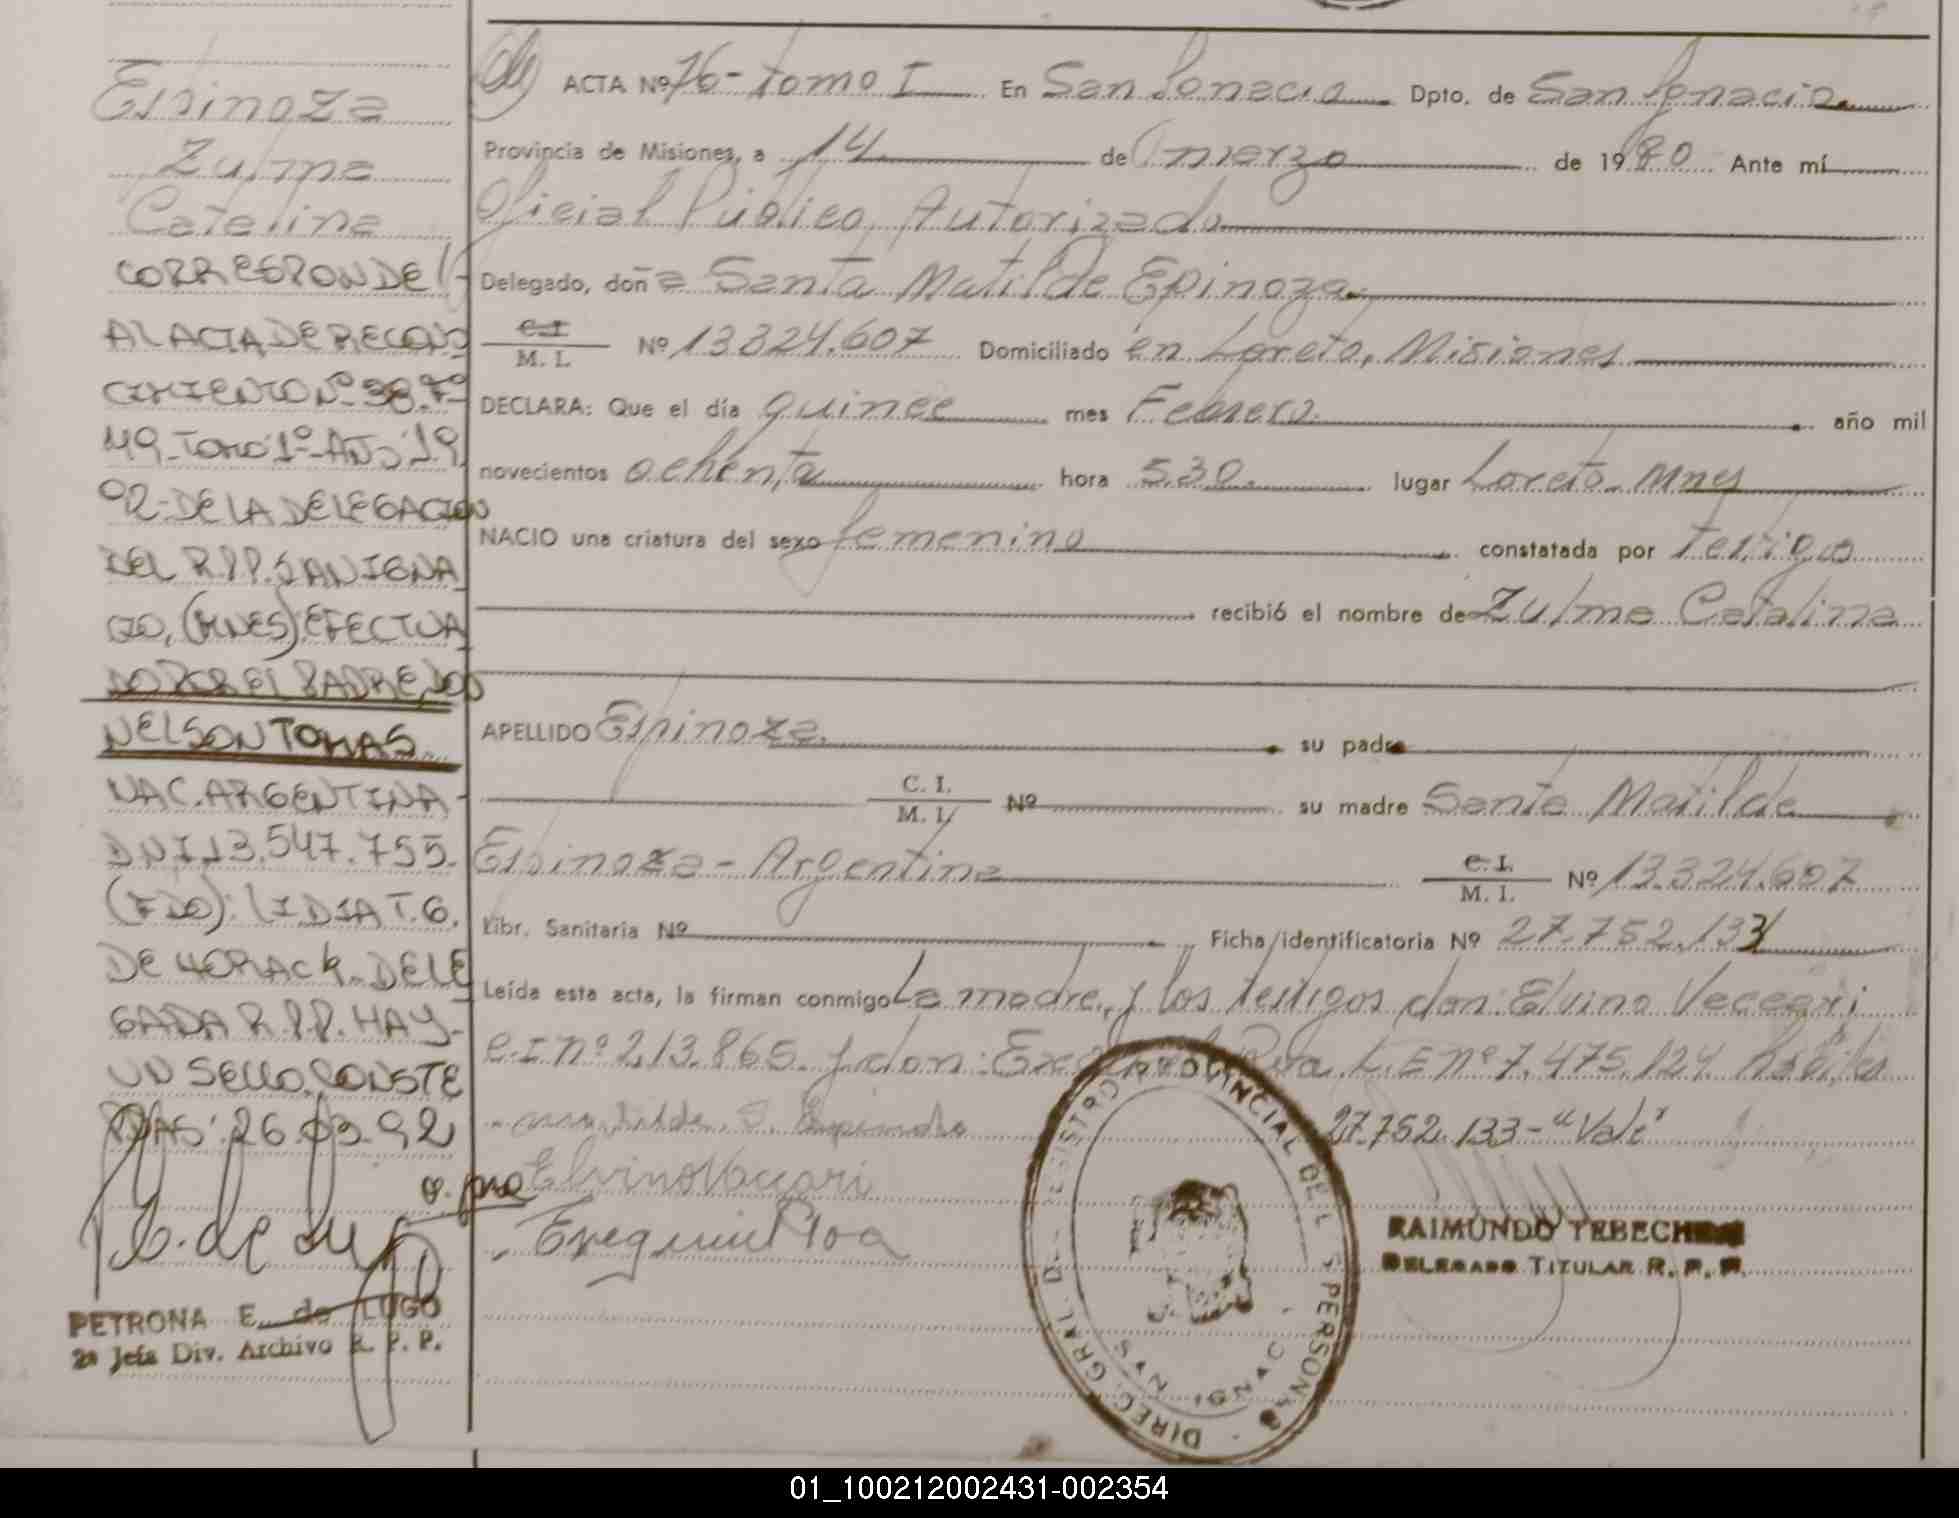 Espinoza
Zulma
Catalina
CORRESPONDE
AL ACTA DE RECONO
CIMIENTO Nº 38. Fº
49-TOMO 1º-AÑO 19
92-DE LA DELEGACION
DEL R.P.P. SAN IGNA
CIO, (MNES) EFECTUA
DO POR EL PADRE, DON
NELSON TOMAS
NAC. ARGENTINA-
DNI 13.547.755.
(FDO): LIDIA T. G.
DE HORACK. DELE
GADA R.P.P. HAY-
UN SELLO. CONSTE
PDAS: 26.03.92
PETRONA E. de LUGO
2ª Jefa Div. Archivo R. P. P.
ACTA Nº 76- tomo I En San Ignacio Dpto. de San Ignacio
Provincia de Misiones, a 14 de marzo de 1980 Ante mí
Oficial Público Autorizado
Delegado, doña Santa Matilde Epinoza
C.I. M. I. Nº 13324.607 Domiciliado en Loreto, Misiones
DECLARA: Que el día quince mes Febrero año mil
novecientos ochenta hora 5.30. lugar Loreto Mnes
NACIO una criatura del sexo femenino constatada por Testigo
recibió el nombre de Zulma Catalina
APELLIDO Espinoza su padre
C. I. M. I. Nº su madre Santa Matilde
Espinoza - Argentina C. I. M. I. Nº 13.324.607
Libr. Sanitaria Nº Ficha identificatoria Nº 27.752.133
Leída esta acta, la firman conmigo La madre, y los testigos don: Elvino Veccari
C.I nº 213.865. y don: Roa L.E nº 7.475.124 hábiles
27.752.133-"Vale"
Elvino Vaccari
Roa
RAIMUNDO TEBECH
DELEGADO TITULAR R. P. P.
DIREC. GRAL. DEL REGISTRO PROVINCIAL DE LAS PERSONAS
SAN IGNACIO
01_100212002431-002354